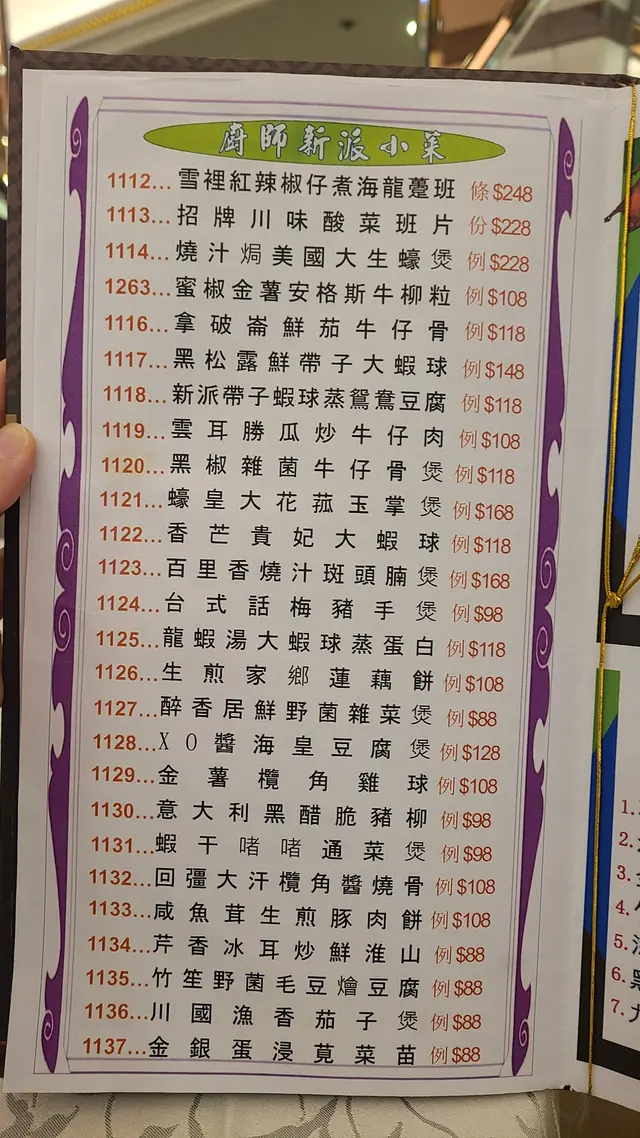 廚師新派小菜
1112...雪裡紅辣椒仔煮海龍躉班 條$248
1113...招牌川味酸菜班片 份$228
1114...燒汁焗美國大生蠔煲 例$228
1263...蜜椒金薯安格斯牛柳粒 例$108
1116...拿破崙鮮茄牛仔骨 例$118
1117...黑松露鮮帶子大蝦球 例$148
1118...新派帶子蝦球蒸鴛鴦豆腐 例$118
1119...雲耳勝瓜炒牛仔肉 例$108
1120...黑椒雜菌牛仔骨煲 例$118
1121...蠔皇大花菰玉掌煲 例$168
1122...香芒貴妃大蝦球 例$118
1123...百里香燒汁斑頭腩煲 例$168
1124...台式話梅豬手煲 例$98
1125...龍蝦湯大蝦球蒸蛋白 例$118
1126...生煎家鄉蓮藕餅 例$108
1127...醉香居鮮野菌雜菜煲 例$88
1128...XO醬海皇豆腐煲 例$128
1129...金薯欖角雞球 例$108
1130...意大利黑醋脆豬柳 例$98
1131...蝦干啫啫通菜煲 例$98
1132...回彊大汗欖角醬燒骨 例$108
1133...咸魚茸生煎豚肉餅 例$108
1134...芹香冰耳炒鮮淮山 例$88
1135...竹笙野菌毛豆燴豆腐 例$88
1136...川國漁香茄子煲 例$88
1137...金銀蛋浸莧菜苗 例$88
1.
2.
3.
4.
5.
6.
7.